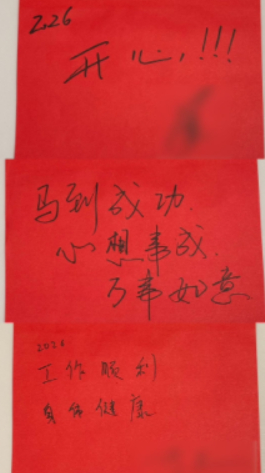 2.26
开心!!!
马到成功.
心想事成.
万事如意
2026
工作顺利
身体健康